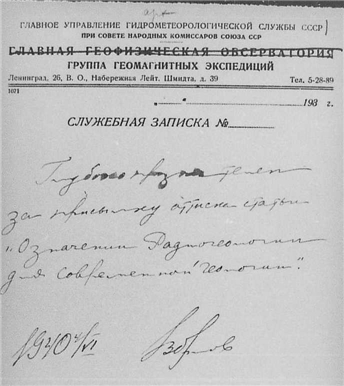 ГЛАВНОЕ УПРАВЛЕНИЕ ГИДРОМЕТЕОРОЛОГИЧЕСКОЙ СЛУЖБЫ СССР
ПРИ СОВЕТЕ НАРОДНЫХ КОМИССАРОВ СОЮЗА ССР
ГЛАВНАЯ ГЕОФИЗИЧЕСКАЯ ОБСЕРВАТОРИЯ
ГРУППА ГЕОМАГНИТНЫХ ЭКСПЕДИЦИЙ
Ленинград, 26, В. О., Набережная Лейт. Шмидта, д. 39 Тел. 5-28-89
193 г.
СЛУЖЕБНАЯ ЗАПИСКА №
Глубоко признателен
за присылку оттиска статьи
"О значении Радиогеологии
для современной геологии".
1940 4/VI